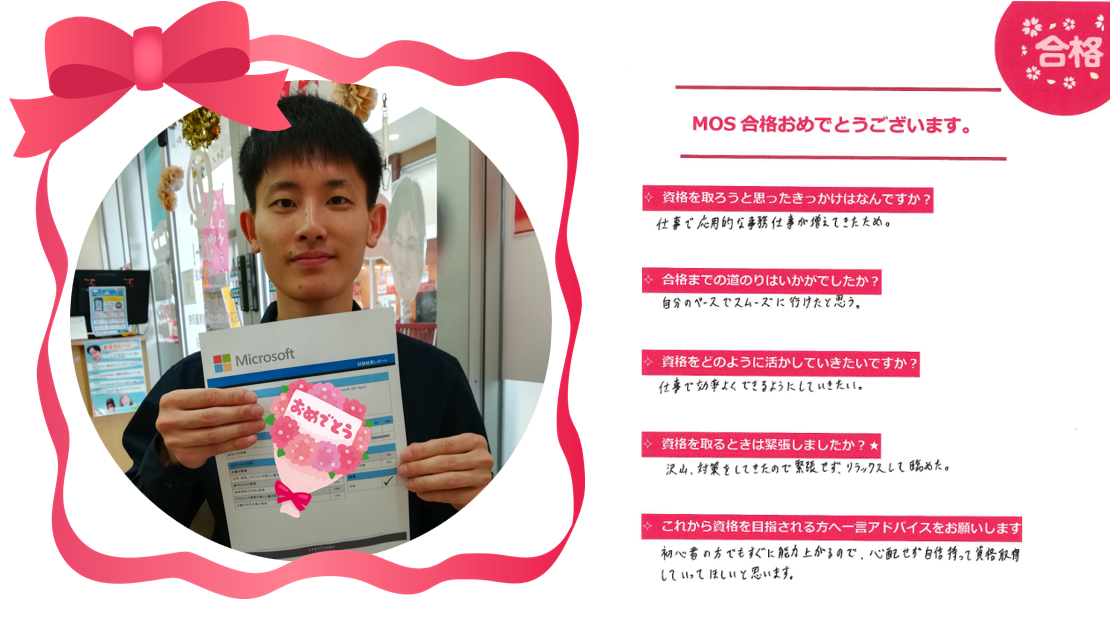 合格
MOS 合格おめでとうございます。
資格を取ろうと思ったきっかけはなんですか？
仕事で応用的な事務仕事が増えてきたため。
合格までの道のりはいかがでしたか？
自分のペースでスムーズに行けたと思う。
資格をどのように活かしていきたいですか？
仕事で効率よくできるようにしていきたい。
資格を取るときは緊張しましたか？★
沢山、対策をしてきたので緊張せず、リラックスして臨めた。
これから資格を目指される方へ一言アドバイスをお願いします
初心者の方でもすぐに能力上がるので、心配せず自信持って資格取得
していってほしいと思います。
Microsoft
試験結果レポート
おめでとう